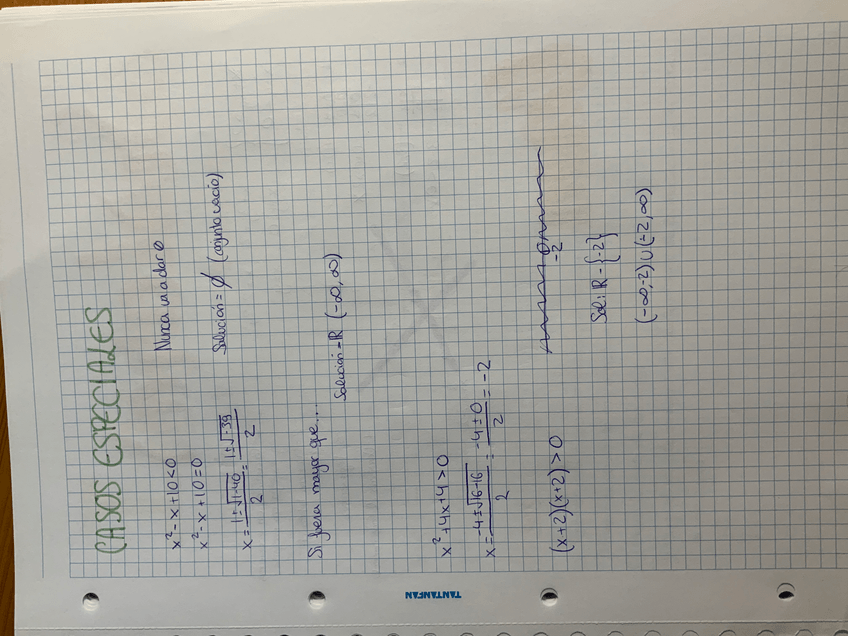 CASOS ESPECIALES
x² - x + 10 < 0 Nunca va a dar 0
x² - x + 10 = 0
Solución = ∅ (conjunto vacío)
x = (1 ± √(1-40))/2 = (1 ± √-39)/2
Si fuera mayor que...
Solución = ℝ (-∞, ∞)
x² + 4x + 4 > 0
x = (-4 ± √(16-16))/2 = (-4 ± 0)/2 = -2
(x+2)(x+2) > 0
-2
Sol: ℝ - {-2}
(-∞, -2) ∪ (-2, ∞)
TANTANFAN